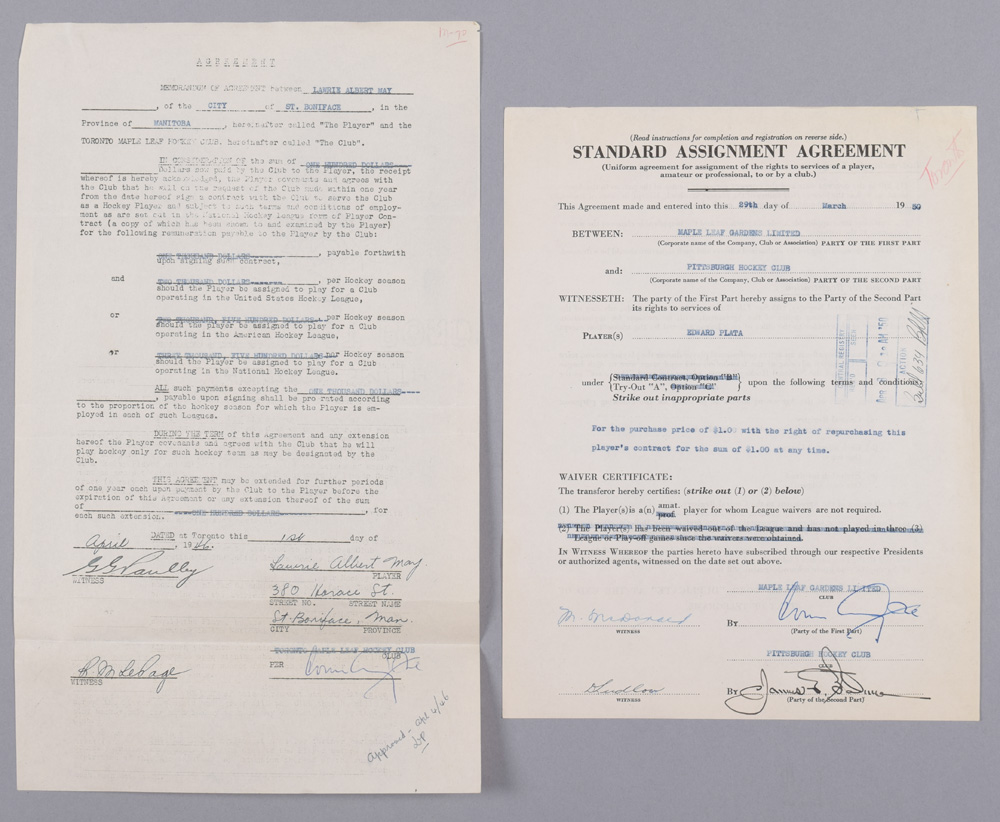 AGREEMENT
MEMORANDUM OF AGREEMENT between LAWRIE ALBERT MAY
, of the CITY of ST. BONIFACE, in the
Province of MANITOBA, hereinafter called "The Player" and the
TORONTO MAPLE LEAF HOCKEY CLUB, hereinafter called "The Club".
IN CONSIDERATION OF the sum of ONE HUNDRED DOLLARS
Dollars now paid by the Club to the Player, the receipt
whereof is hereby acknowledged, the Player covenants and agrees with
the Club that he will on the request of the Club made within one year
from the date hereof sign a contract with the Club to serve the Club
as a Hockey Player and subject to such terms and conditions of employ-
ment as are set out in the National Hockey League form of Player Con-
tract (a copy of which has been shown to and examined by the Player)
for the following remuneration payable to the Player by the Club:
ONE THOUSAND DOLLARS, payable forthwith
upon signing such contract,
and TWO THOUSAND DOLLARS, per Hockey season
should the Player be assigned to play for a Club
operating in the United States Hockey League,
or TWO THOUSAND, FIVE HUNDRED DOLLARS, per Hockey season
should the Player be assigned to play for a Club
operating in the American Hockey League,
or THREE THOUSAND, FIVE HUNDRED DOLLARS per Hockey season
should the Player be assigned to play for a Club
operating in the National Hockey League.
ALL such payments excepting the ONE THOUSAND DOLLARS
, payable upon signing shall be pro rated according
to the proportion of the hockey season for which the Player is em-
ployed in each of such Leagues.
DURING THE TERM of this Agreement and any extension
hereof the Player covenants and agrees with the Club that he will
play hockey only for such hockey team as may be designated by the
Club.
THIS AGREEMENT may be extended for further periods
of one year each upon payment by the Club to the Player before the
expiration of this Agreement or any extension thereof of the sum
of ONE HUNDRED DOLLARS, for
each such extension.
DATED at Toronto this 1st day of
April, 1946.
Lawrie Albert May
WITNESS PLAYER
380 Horace St.
STREET NO. STREET NAME
St. Boniface, Man.
CITY PROVINCE
TORONTO MAPLE LEAF HOCKEY CLUB
CLUB
R. M. LePage PER
WITNESS
Approved - Apl 4/46
(Read instructions for completion and registration on reverse side.)
STANDARD ASSIGNMENT AGREEMENT
(Uniform agreement for assignment of the rights to services of a player,
amateur or professional, to or by a club.)
This Agreement made and entered into this 29th day of March 1950
BETWEEN: MAPLE LEAF GARDENS LIMITED
(Corporate name of the Company, Club or Association) PARTY OF THE FIRST PART
and: PITTSBURGH HOCKEY CLUB
(Corporate name of the Company, Club or Association) PARTY OF THE SECOND PART
WITNESSETH: The party of the First Part hereby assigns to the Party of the Second Part
its rights to services of
PLAYER(S) EDWARD PLATA
under {Standard Contract, Option "B" Try-Out "A", Option "C"} upon the following terms and conditions
Strike out inappropriate parts
For the purchase price of $1.00 with the right of repurchasing this
player's contract for the sum of $1.00 at any time.
WAIVER CERTIFICATE:
The transferor hereby certifies: (strike out (1) or (2) below)
(1) The Player(s) is a(n) amat. prof. player for whom League waivers are not required.
(2) The Player(s) has been waived out of the League and has not played in three (3)
League or Play-off games since the waivers were obtained.
IN WITNESS WHEREOF the parties hereto have subscribed through our respective Presidents
or authorized agents, witnessed on the date set out above.
MAPLE LEAF GARDENS LIMITED
CLUB
M. McDonald BY
WITNESS (Party of the First Part)
PITTSBURGH HOCKEY CLUB
CLUB
BY
WITNESS (Party of the Second Part)